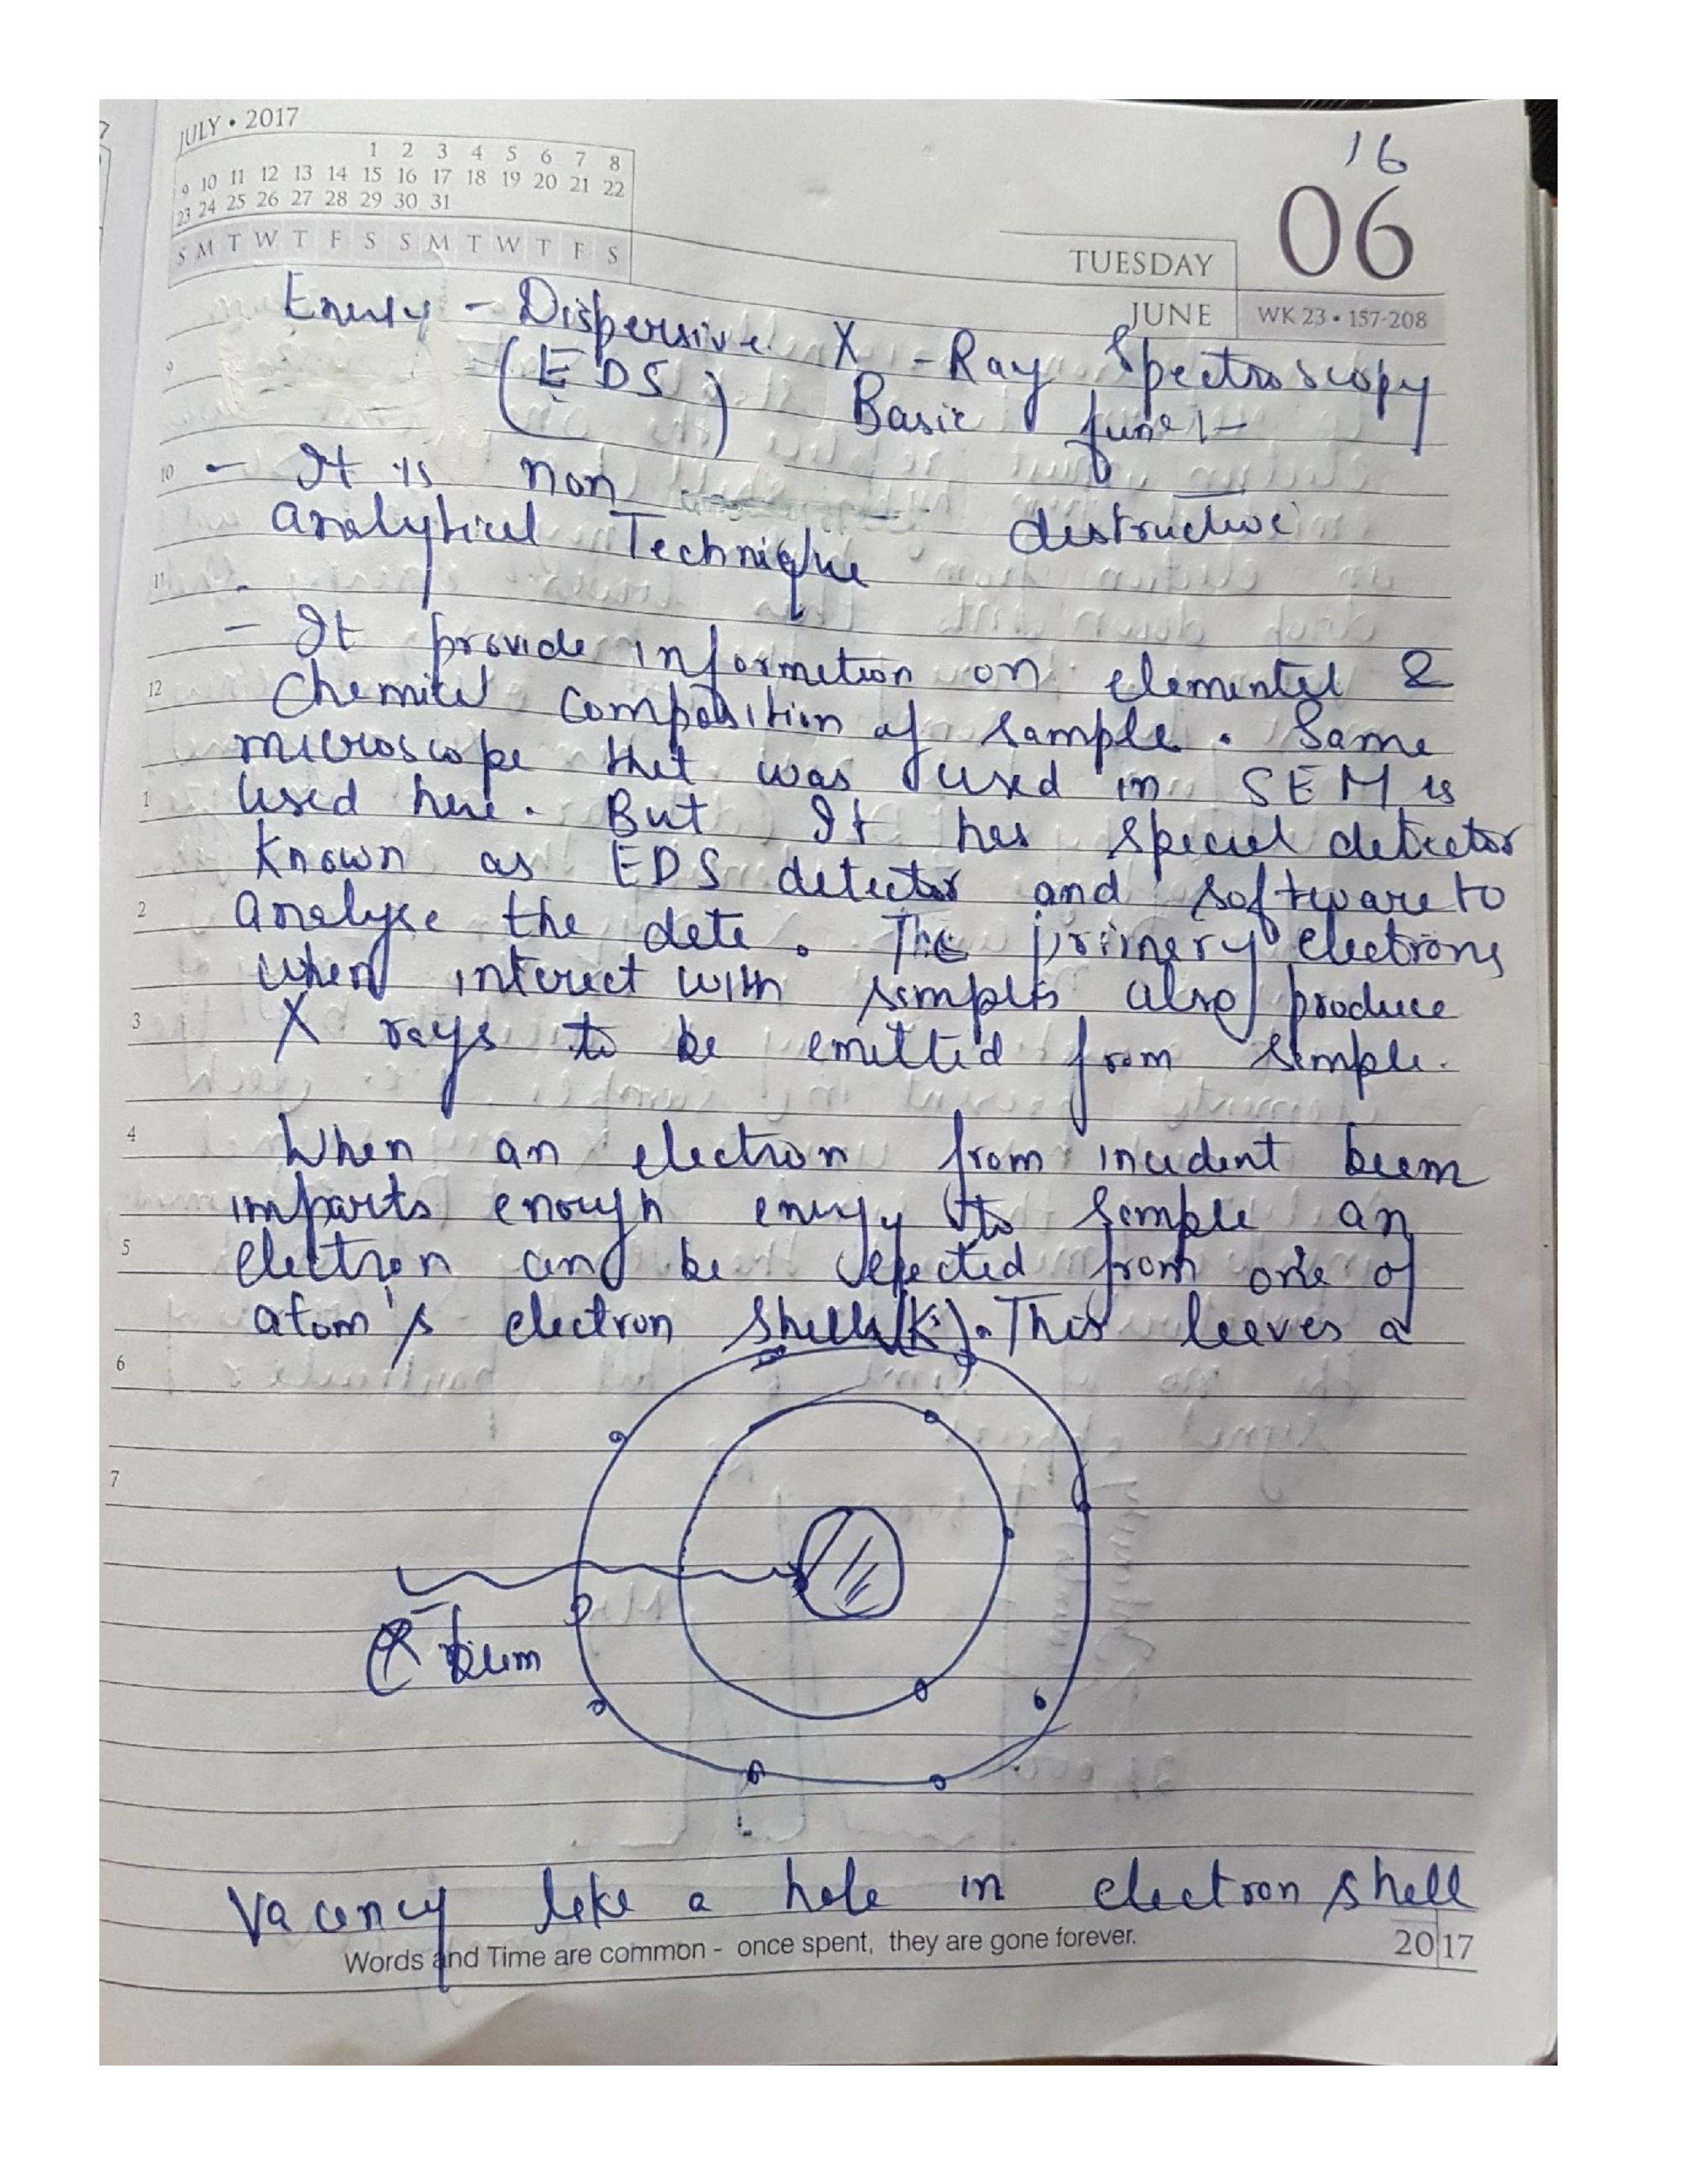 JULY • 2017
1 2 3 4 5 6 7 8
9 10 11 12 13 14 15 16 17 18 19 20 21 22
23 24 25 26 27 28 29 30 31
S M T W T F S S M T W T F S
16
06
TUESDAY
JUNE WK 23 • 157-208
Energy - Dispersive X - Ray Spectroscopy
(EDS) Basic
10 - It is non destructive
analytical Technique
11
- It provide information on elemental &
12 Chemical composition of sample. Same
microscope that was used in SEM is
1 used here. But It has special detector
Known as EDS detector and software to
2 analyse the data. The primary electrons
when interact with samples also produce
3 X rays to be emitted from sample.
4 When an electron from incident beam
imparts enough energy to sample an
5 electron can be ejected from one of
atom's electron shells(K). This leaves a
6
7
beam
Vacancy like a hole in electron shell
Words and Time are common - once spent, they are gone forever.
2017